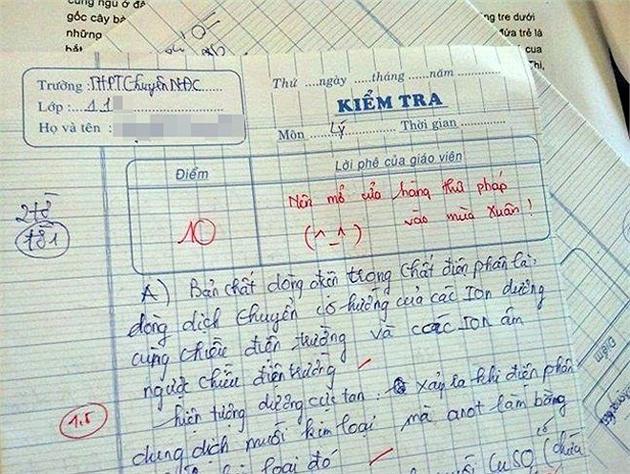 cung ngủ ở đâ
gốc cây bà
những
ng tre dưới
đứa trẻ là
cua
Trường : THPT Chuyên NĐC
Lớp : 11
Họ và tên :
Thứ ....ngày .....tháng .....năm
KIỂM TRA
Môn Lý Thời gian
Điểm
Lời phê của giáo viên
10
Nên mở cửa hàng thư pháp
vào mùa xuân !
(^_^)
Đề 1
A) Bản chất dòng điện trong chất điện phân là:
dòng dịch chuyển có hướng của các ION dương
cùng chiều điện trường và các ION âm
ngược chiều điện trường
hiện tượng dương cực tan: xảy ra khi điện phân
1.5
dung dịch muối kim loại mà anot làm bằng
loại đó
CuSO4 (chứa
Điểm